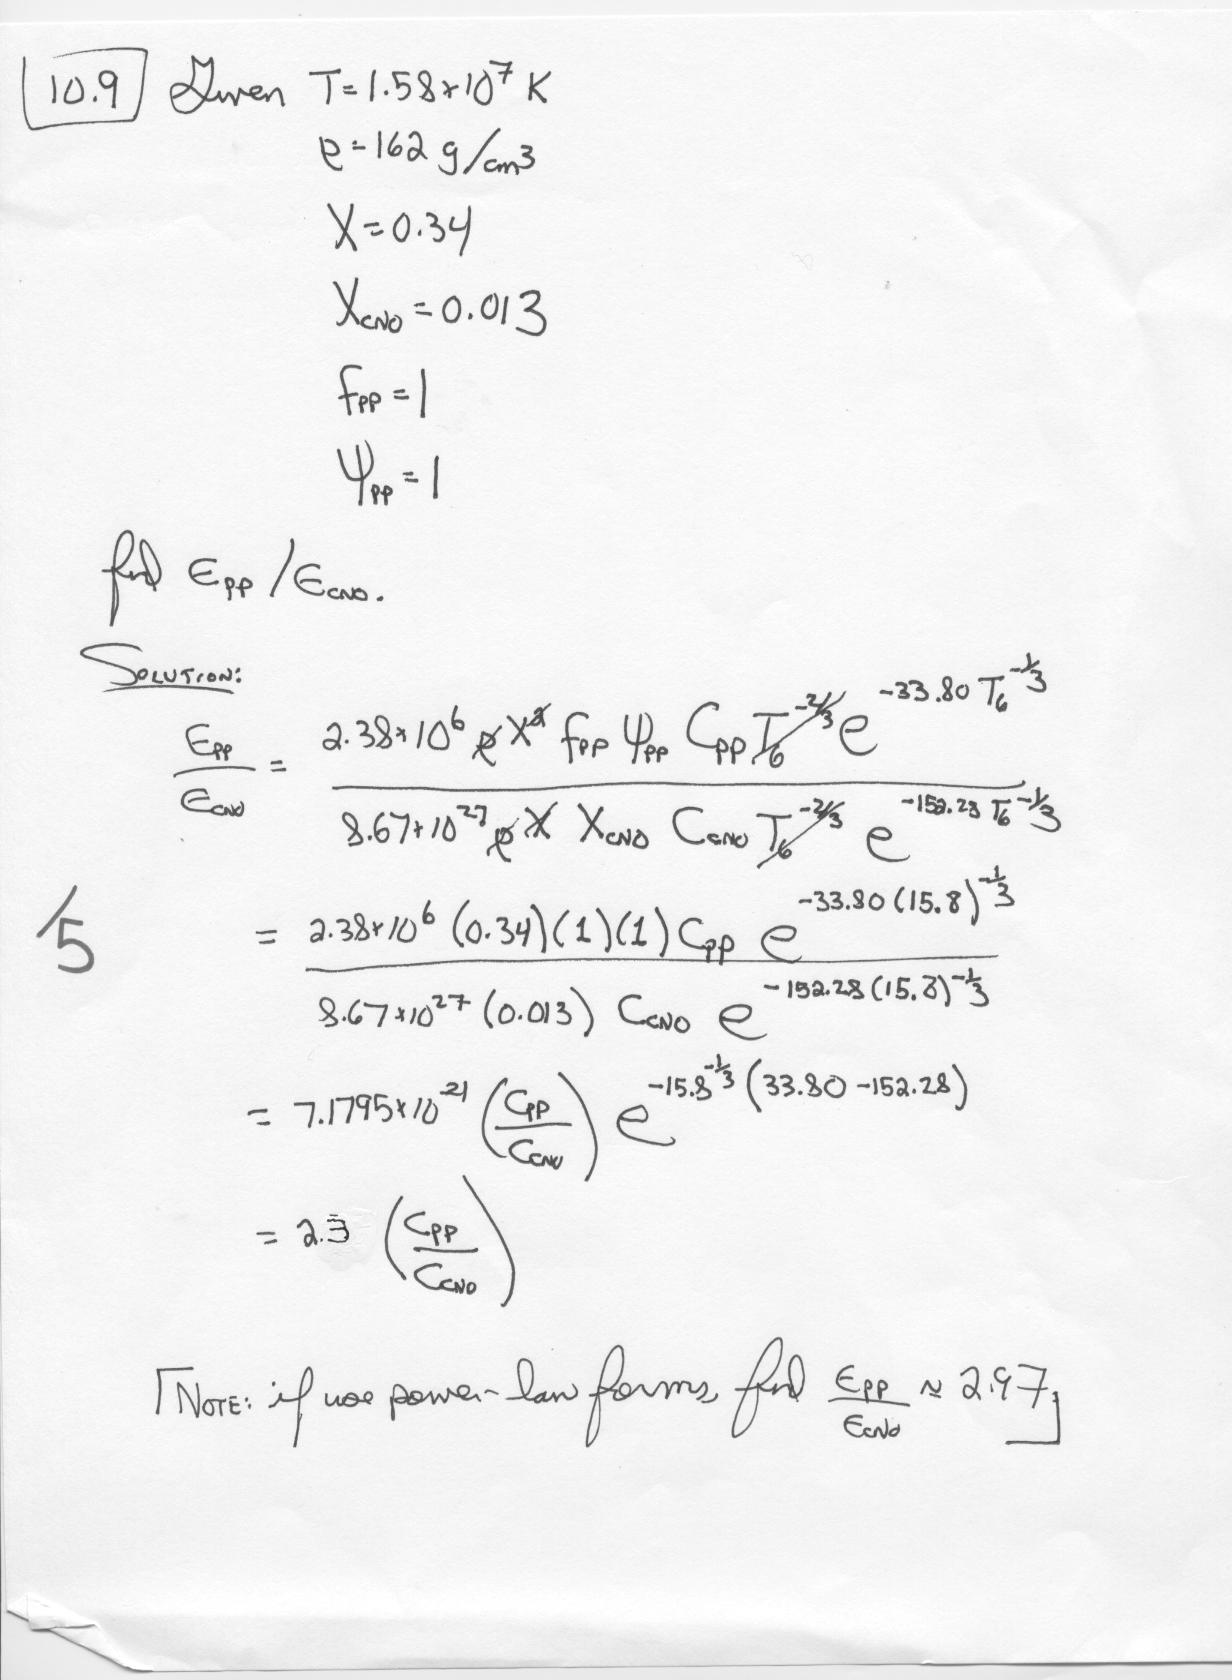 10.9 Given T=1.58×10⁷ K
ρ=162 g/cm³
X=0.34
X_CNO=0.013
f_PP=1
Ψ_PP=1
find ε_PP/ε_CNO.
SOLUTION:
ε_PP/ε_CNO = 2.38×10⁶ ρ X² f_PP Ψ_PP C_PP T₆^(-2/3) e^(-33.80 T₆^(-1/3)) / 8.67×10²⁷ ρ X X_CNO C_CNO T₆^(-2/3) e^(-152.28 T₆^(-1/3))
/5
= 2.38×10⁶ (0.34)(1)(1) C_PP e^(-33.80 (15.8)^(-1/3)) / 8.67×10²⁷ (0.013) C_CNO e^(-152.28 (15.8)^(-1/3))
= 7.1795×10⁻²¹ (C_PP/C_CNO) e^(-15.8^(-1/3) (33.80-152.28))
= 2.3 (C_PP/C_CNO)
[NOTE: if use power-law forms, find ε_PP/ε_CNO ≈ 2.97.]